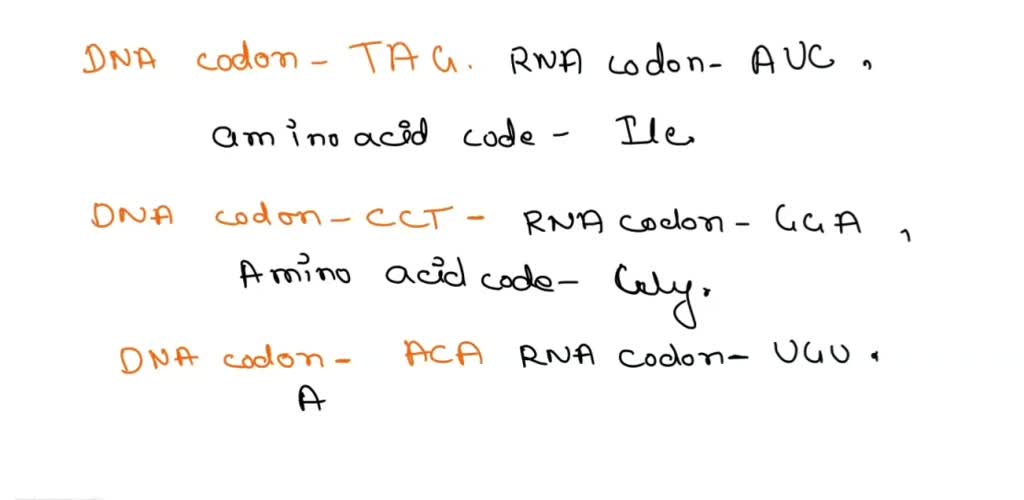 DNA codon - TAG. RNA codon- AUC,
amino acid code - Ile
DNA codon - CCT - RNA codon - GGA,
Amino acid code - Gly.
DNA codon - ACA RNA codon - UGU.
A